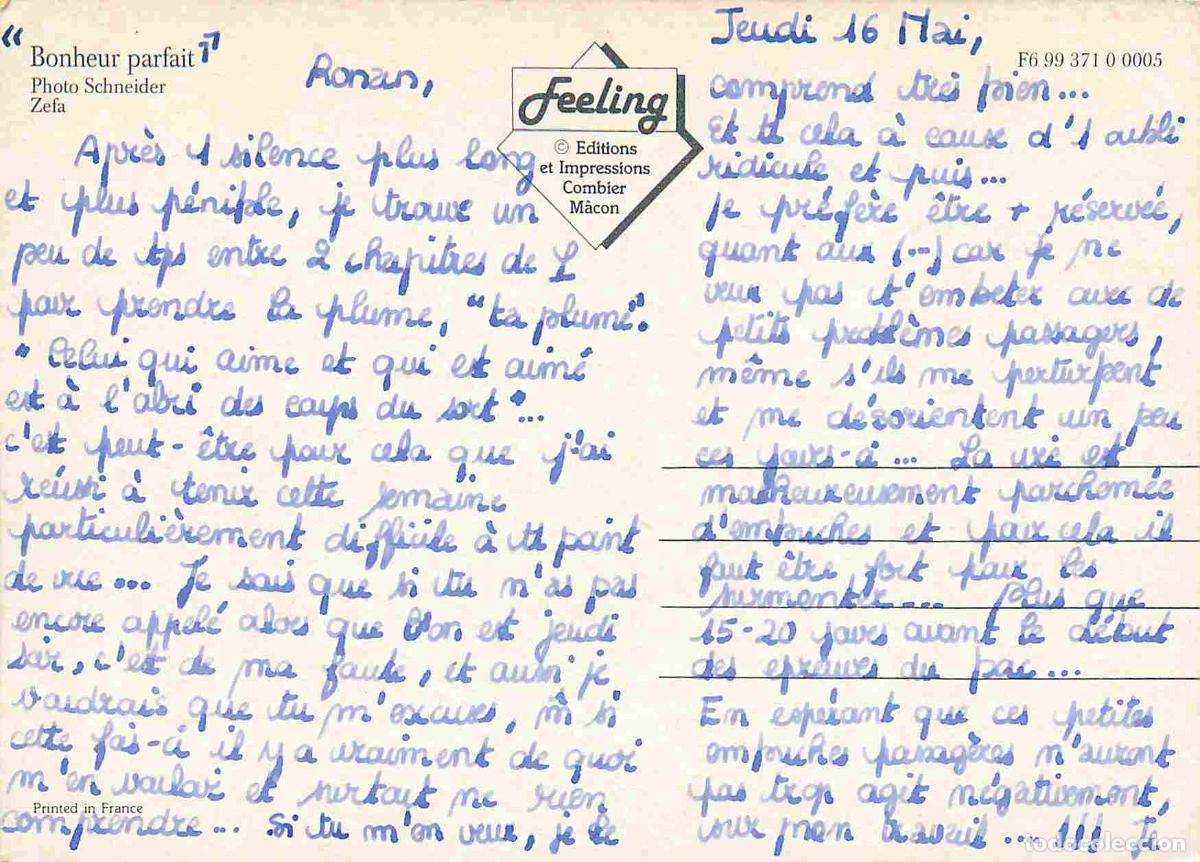 " Bonheur parfait "
Photo Schneider
Zefa
Feeling
© Editions
et Impressions
Combier
Mâcon
F6 99 371 0 0005
Ronan,
Après 1 silence plus long
et plus pénible, je trouve un
peu de tps entre 2 chapitres de
pour prendre la plume, "ta plume".
"Celui qui aime et qui est aimé
est à l'abri des coups du sort"...
c'est peut-être pour cela que j'ai
réussi à tenir cette semaine
particulièrement difficile à tt point
de vue... Je sais que si tu n'as pas
encore appelé alors que l'on est jeudi
soir, c'est de ma faute, et aussi je
voudrais que tu m'excuses, m̂ si
cette fois-ci il y a vraiment de quoi
m'en vouloir et surtout ne rien
comprendre... si tu m'en veux, je le
Printed in France
Jeudi 16 Mai,
comprend très bien...
Et tt cela à cause d'1 oubli
ridicule et puis...
Je préfère être + réservée,
quant aux (...) car je ne
veux pas t'embêter avec de
petits problèmes passagers,
même s'ils me perturbent
et me désorientent un peu
ces jours-ci... La vie est
malheureusement parchemée
d'embuches et pour cela il
faut être fort pour les
surmonter.... Plus que
15-20 jours avant le début
des epreuves du bac...
En espérant que ces petites
embuches passagères n'auront
pas trop agit négativement,
sur mon travail...!!!
todocoleccion